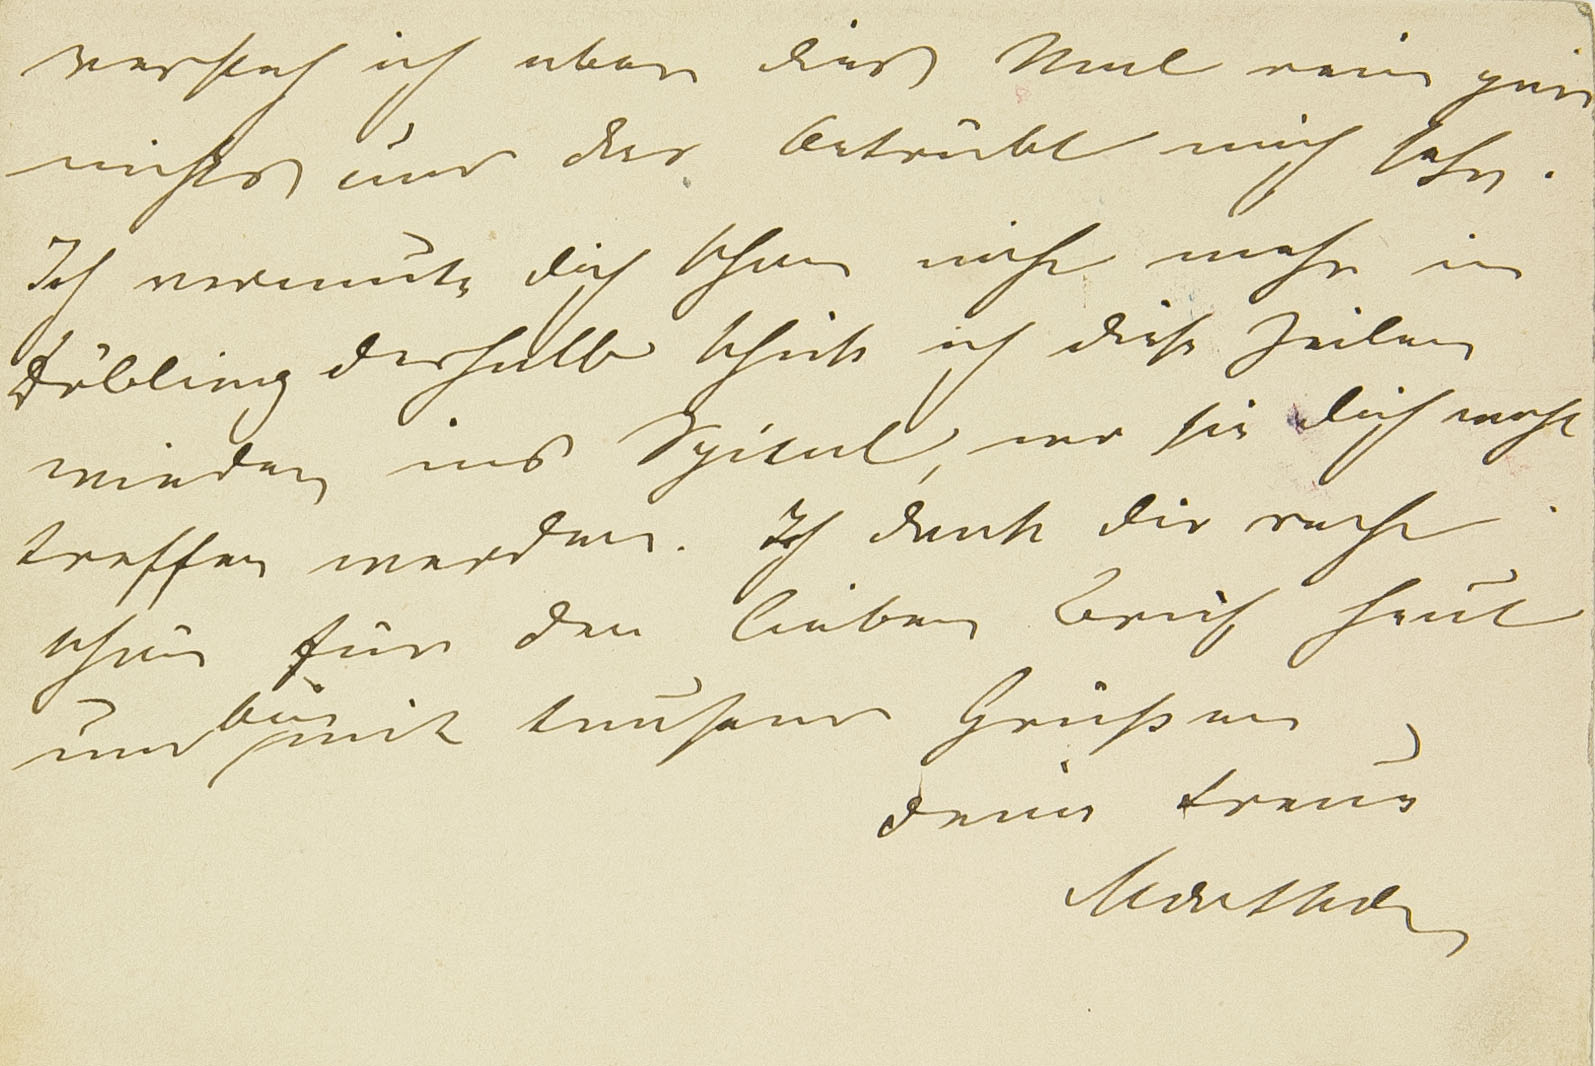 versteh ich aber dies Mal rein gar
nichts und das betrübt mich sehr.
Ich vermute dich schon nicht mehr in
Döbling deshalb schick ich diese Zeilen
wieder ins Spital, wo sie dich wohl
treffen werden. Ich danke dir recht
schön für den lieben Brief heut
und bin mit tausend Grüßen
deine treue
Martha